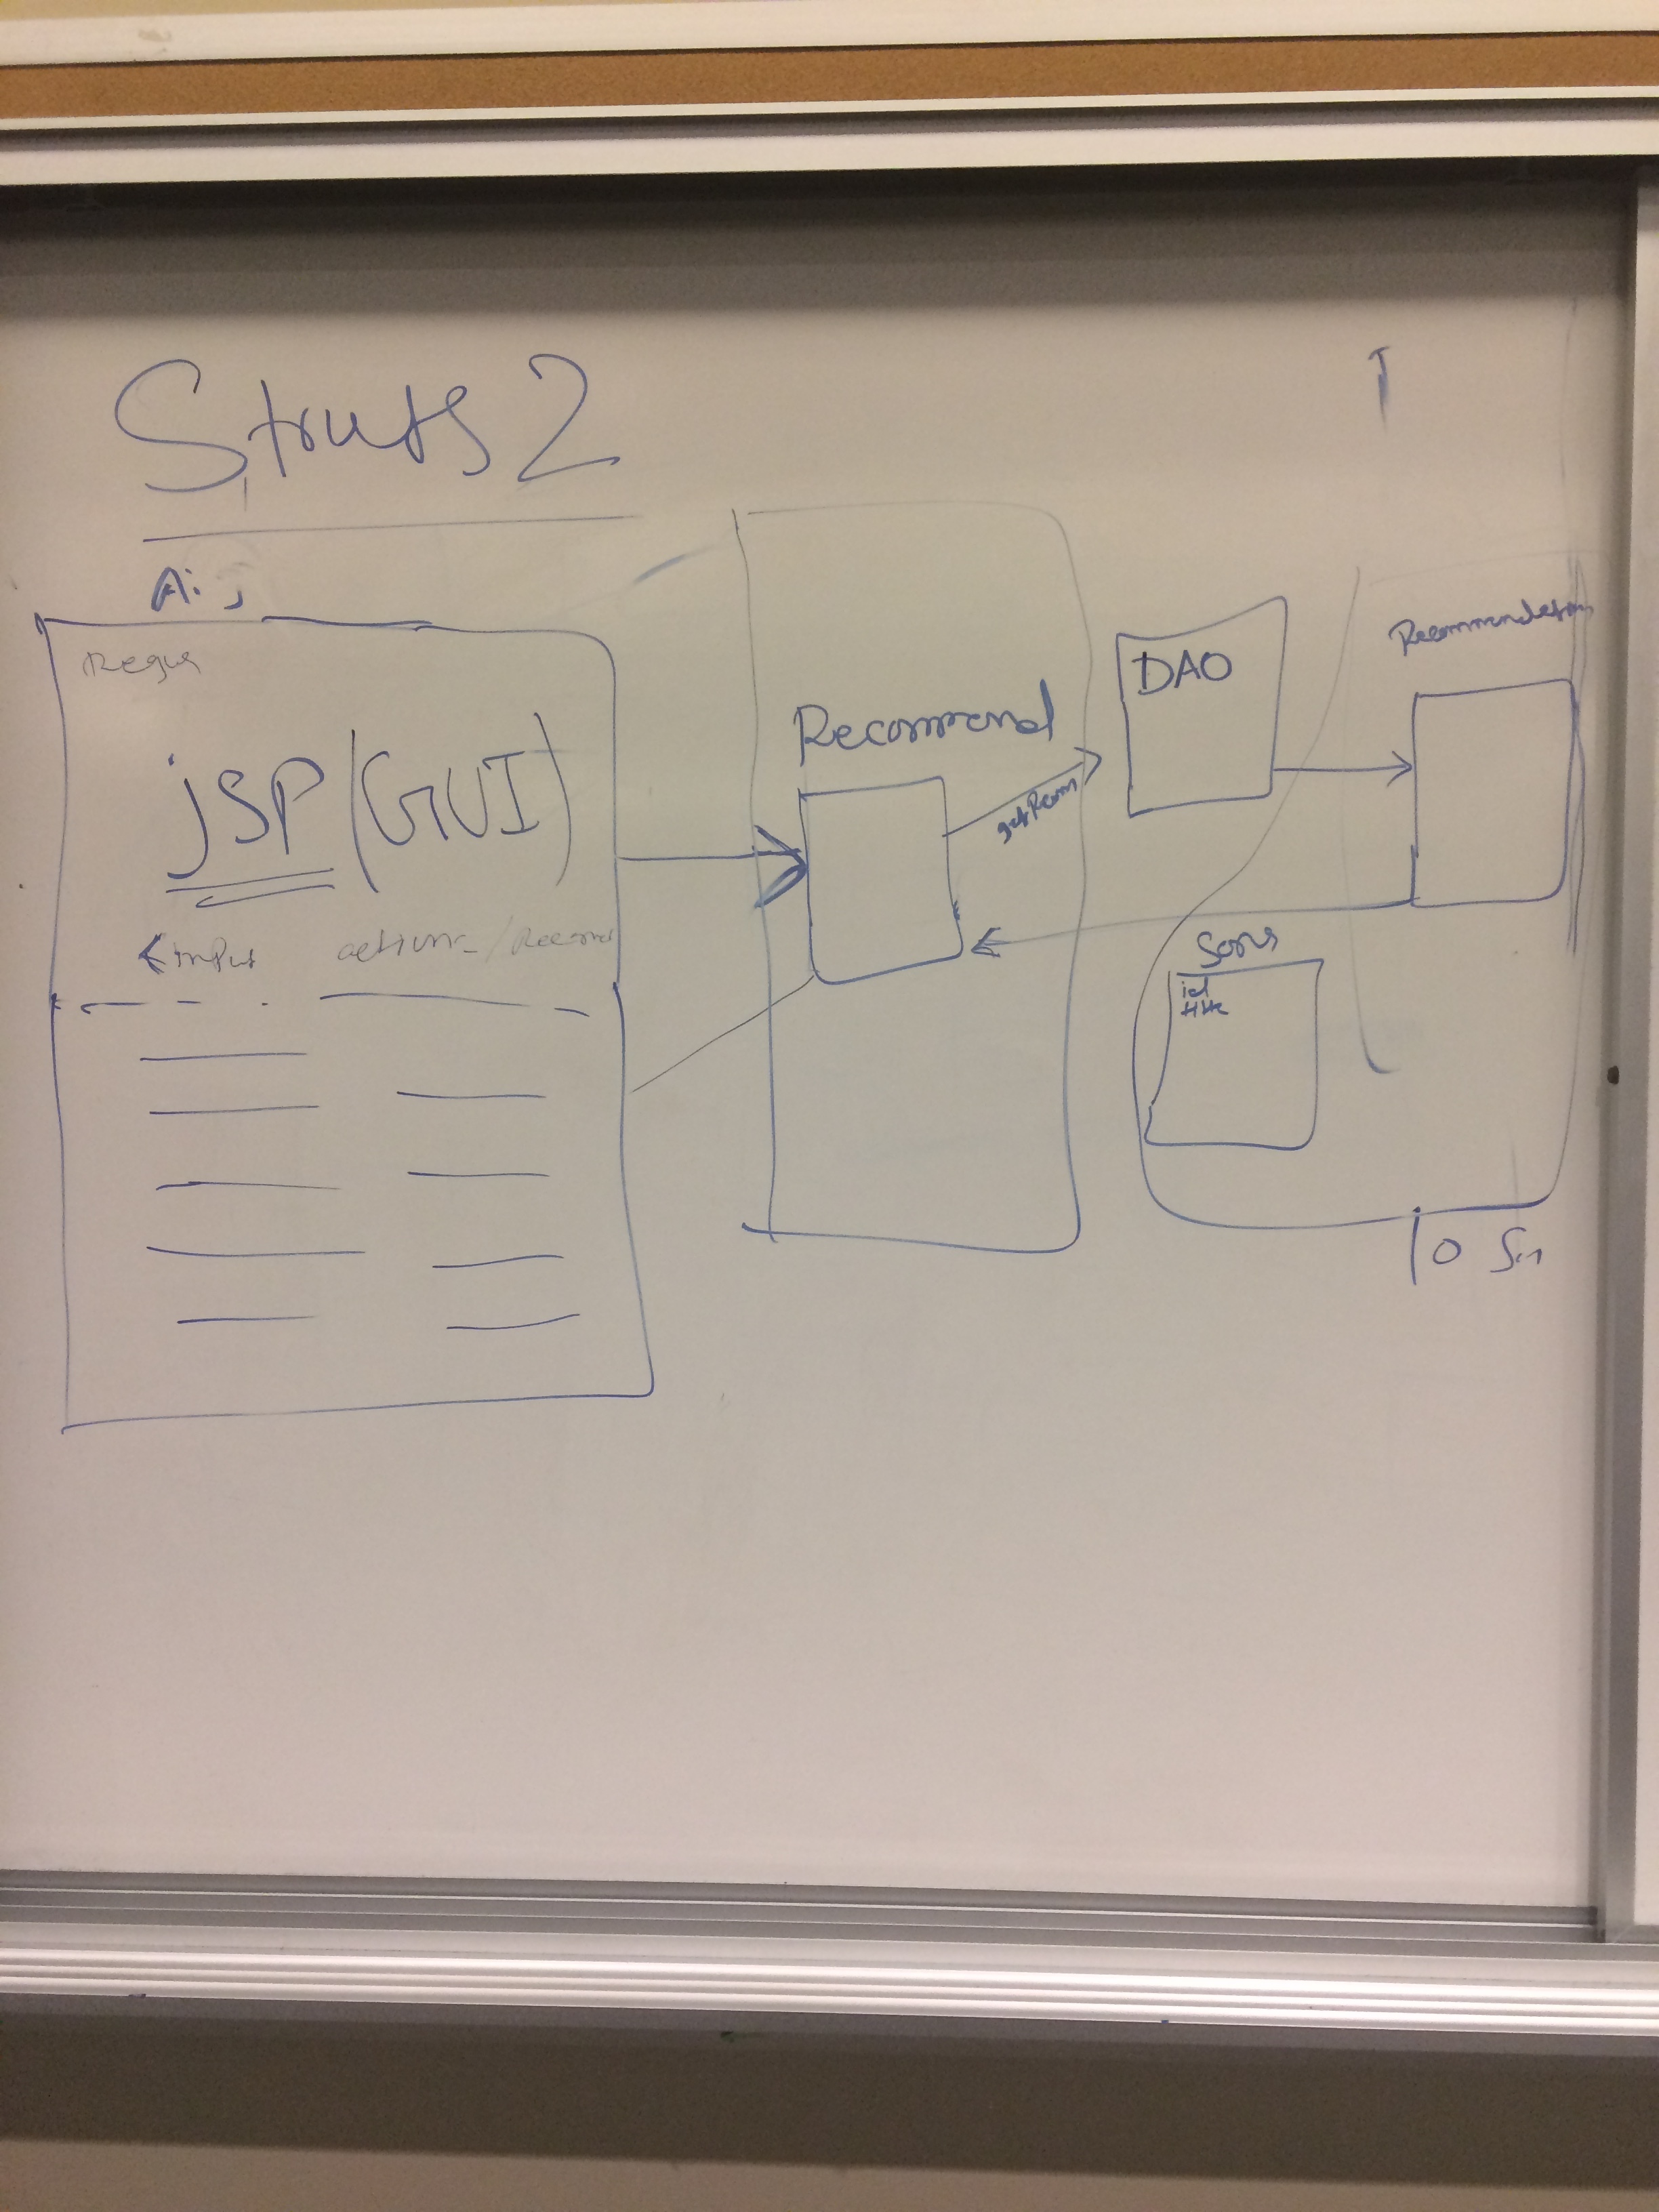 Struts 2
jSP (GUI)
<input action=/Recom
Recommend
getRecom
DAO
Recommendation
id
title
10